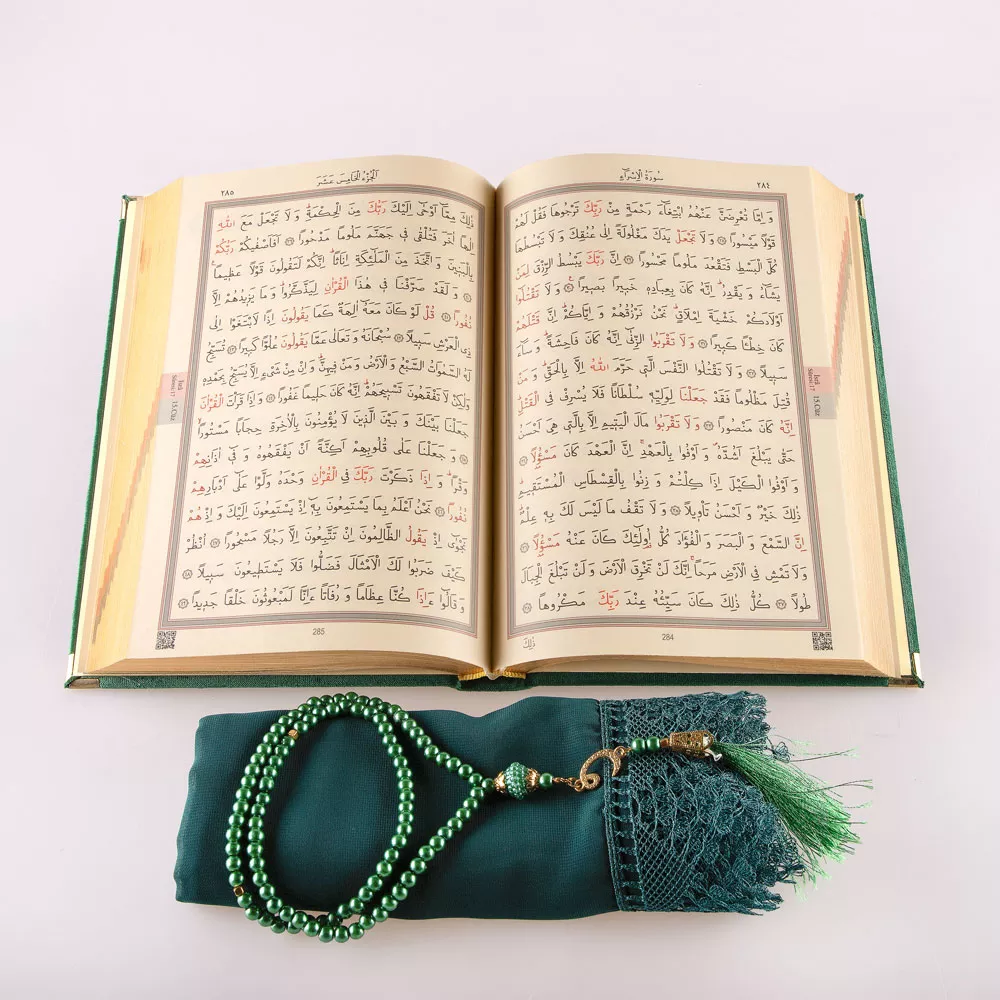 سُورَةُ الْاِسْرَاءِ
٢٨٤
وَ اِمَّا تُعْرِضَنَّ عَنْهُمُ ابْتِغَٓاءَ رَحْمَةٍ مِنْ رَبِّكَ تَرْجُوهَا فَقُلْ لَهُمْ
قَوْلًا مَيْسُورًا ﴿٢٨﴾ وَ لَا تَجْعَلْ يَدَكَ مَغْلُولَةً اِلٰى عُنُقِكَ وَ لَا تَبْسُطْهَا
كُلَّ الْبَسْطِ فَتَقْعُدَ مَلُومًا مَحْسُورًا ﴿٢٩﴾ اِنَّ رَبَّكَ يَبْسُطُ الرِّزْقَ لِمَنْ
يَشَٓاءُ وَ يَقْدِرُ اِنَّهُ كَانَ بِعِبَادِهِ خَبِيرًا بَصِيرًا ﴿٣٠﴾ وَ لَا تَقْتُلُٓوا
اَوْلَادَكُمْ خَشْيَةَ اِمْلَاقٍ نَحْنُ نَرْزُقُهُمْ وَ اِيَّاكُمْ اِنَّ قَتْلَهُمْ
كَانَ خِطْـًٔا كَبِيرًا ﴿٣١﴾ وَ لَا تَقْرَبُوا الزِّنٰٓى اِنَّهُ كَانَ فَاحِشَةً وَ سَٓاءَ
سَبِيلًا ﴿٣٢﴾ وَ لَا تَقْتُلُوا النَّفْسَ الَّتِي حَرَّمَ اللّٰهُ اِلَّا بِالْحَقِّ وَ مَنْ
قُتِلَ مَظْلُومًا فَقَدْ جَعَلْنَا لِوَلِيِّهِ سُلْطَانًا فَلَا يُسْرِفْ فِي الْقَتْلِ
اِنَّهُ كَانَ مَنْصُورًا ﴿٣٣﴾ وَ لَا تَقْرَبُوا مَالَ الْيَتِيمِ اِلَّا بِالَّتِي هِيَ اَحْسَنُ
حَتّٰى يَبْلُغَ اَشُدَّهُ وَ اَوْفُوا بِالْعَهْدِ اِنَّ الْعَهْدَ كَانَ مَسْؤُلًا ﴿٣٤﴾
وَ اَوْفُوا الْكَيْلَ اِذَا كِلْتُمْ وَ زِنُوا بِالْقِسْطَاسِ الْمُسْتَقِيمِ
ذٰلِكَ خَيْرٌ وَ اَحْسَنُ تَأْوِيلًا ﴿٣٥﴾ وَ لَا تَقْفُ مَا لَيْسَ لَكَ بِهِ عِلْمٌ
اِنَّ السَّمْعَ وَ الْبَصَرَ وَ الْفُؤَادَ كُلُّ اُولٰٓئِكَ كَانَ عَنْهُ مَسْؤُلًا ﴿٣٦﴾
وَ لَا تَمْشِ فِي الْاَرْضِ مَرَحًا اِنَّكَ لَنْ تَخْرِقَ الْاَرْضَ وَ لَنْ تَبْلُغَ الْجِبَالَ
طُولًا ﴿٣٧﴾ كُلُّ ذٰلِكَ كَانَ سَيِّئُهُ عِنْدَ رَبِّكَ مَكْرُوهًا ﴿٣٨﴾
ذٰلِكَ
284
İsrâ
Sûresi 17
15.Cüz
اَلْجُزْءُ الْخَامِسَ عَشَرَ
٢٨٥
ذٰلِكَ مِمَّٓا اَوْحٰٓى اِلَيْكَ رَبُّكَ مِنَ الْحِكْمَةِ وَ لَا تَجْعَلْ مَعَ اللّٰهِ
اِلٰهًا اٰخَرَ فَتُلْقٰى فِي جَهَنَّمَ مَلُومًا مَدْحُورًا ﴿٣٩﴾ اَفَاَصْفٰيكُمْ رَبُّكُمْ
بِالْبَنِينَ وَ اتَّخَذَ مِنَ الْمَلٰٓئِكَةِ اِنَاثًا اِنَّكُمْ لَتَقُولُونَ قَوْلًا عَظِيمًا
﴿٤٠﴾ وَ لَقَدْ صَرَّفْنَا فِي هٰذَا الْقُرْاٰنِ لِيَذَّكَّرُوا وَ مَا يَزِيدُهُمْ اِلَّا
نُفُورًا ﴿٤١﴾ قُلْ لَوْ كَانَ مَعَهُٓ اٰلِهَةٌ كَمَا يَقُولُونَ اِذًا لَابْتَغَوْا اِلٰى
ذِي الْعَرْشِ سَبِيلًا ﴿٤٢﴾ سُبْحَانَهُ وَ تَعَالٰى عَمَّا يَقُولُونَ عُلُوًّا كَبِيرًا ﴿٤٣﴾ تُسَبِّحُ
لَهُ السَّمٰوَاتُ السَّبْعُ وَ الْاَرْضُ وَ مَنْ فِيهِنَّ وَ اِنْ مِنْ شَيْءٍ اِلَّا يُسَبِّحُ بِحَمْدِهِ
وَلٰكِنْ لَا تَفْقَهُونَ تَسْبِيحَهُمْ اِنَّهُ كَانَ حَلِيمًا غَفُورًا ﴿٤٤﴾ وَ اِذَا قَرَأْتَ الْقُرْاٰنَ
جَعَلْنَا بَيْنَكَ وَ بَيْنَ الَّذِينَ لَا يُؤْمِنُونَ بِالْاٰخِرَةِ حِجَابًا مَسْتُورًا
﴿٤٥﴾ وَ جَعَلْنَا عَلٰى قُلُوبِهِمْ اَكِنَّةً اَنْ يَفْقَهُوهُ وَ فِٓي اٰذَانِهِمْ
وَقْرًا وَ اِذَا ذَكَرْتَ رَبَّكَ فِي الْقُرْاٰنِ وَحْدَهُ وَلَّوْا عَلٰٓى اَدْبَارِهِمْ
نُفُورًا ﴿٤٦﴾ نَحْنُ اَعْلَمُ بِمَا يَسْتَمِعُونَ بِهِٓ اِذْ يَسْتَمِعُونَ اِلَيْكَ وَ اِذْ هُمْ
نَجْوٰٓى اِذْ يَقُولُ الظَّالِمُونَ اِنْ تَتَّبِعُونَ اِلَّا رَجُلًا مَسْحُورًا ﴿٤٧﴾ اُنْظُرْ
كَيْفَ ضَرَبُوا لَكَ الْاَمْثَالَ فَضَلُّوا فَلَا يَسْتَطِيعُونَ سَبِيلًا ﴿٤٨﴾
وَ قَالُٓوا ءَاِذَا كُنَّا عِظَامًا وَ رُفَاتًا ءَاِنَّا لَمَبْعُوثُونَ خَلْقًا جَدِيدًا ﴿٤٩﴾
285
İsrâ
Sûresi 17
15.Cüz